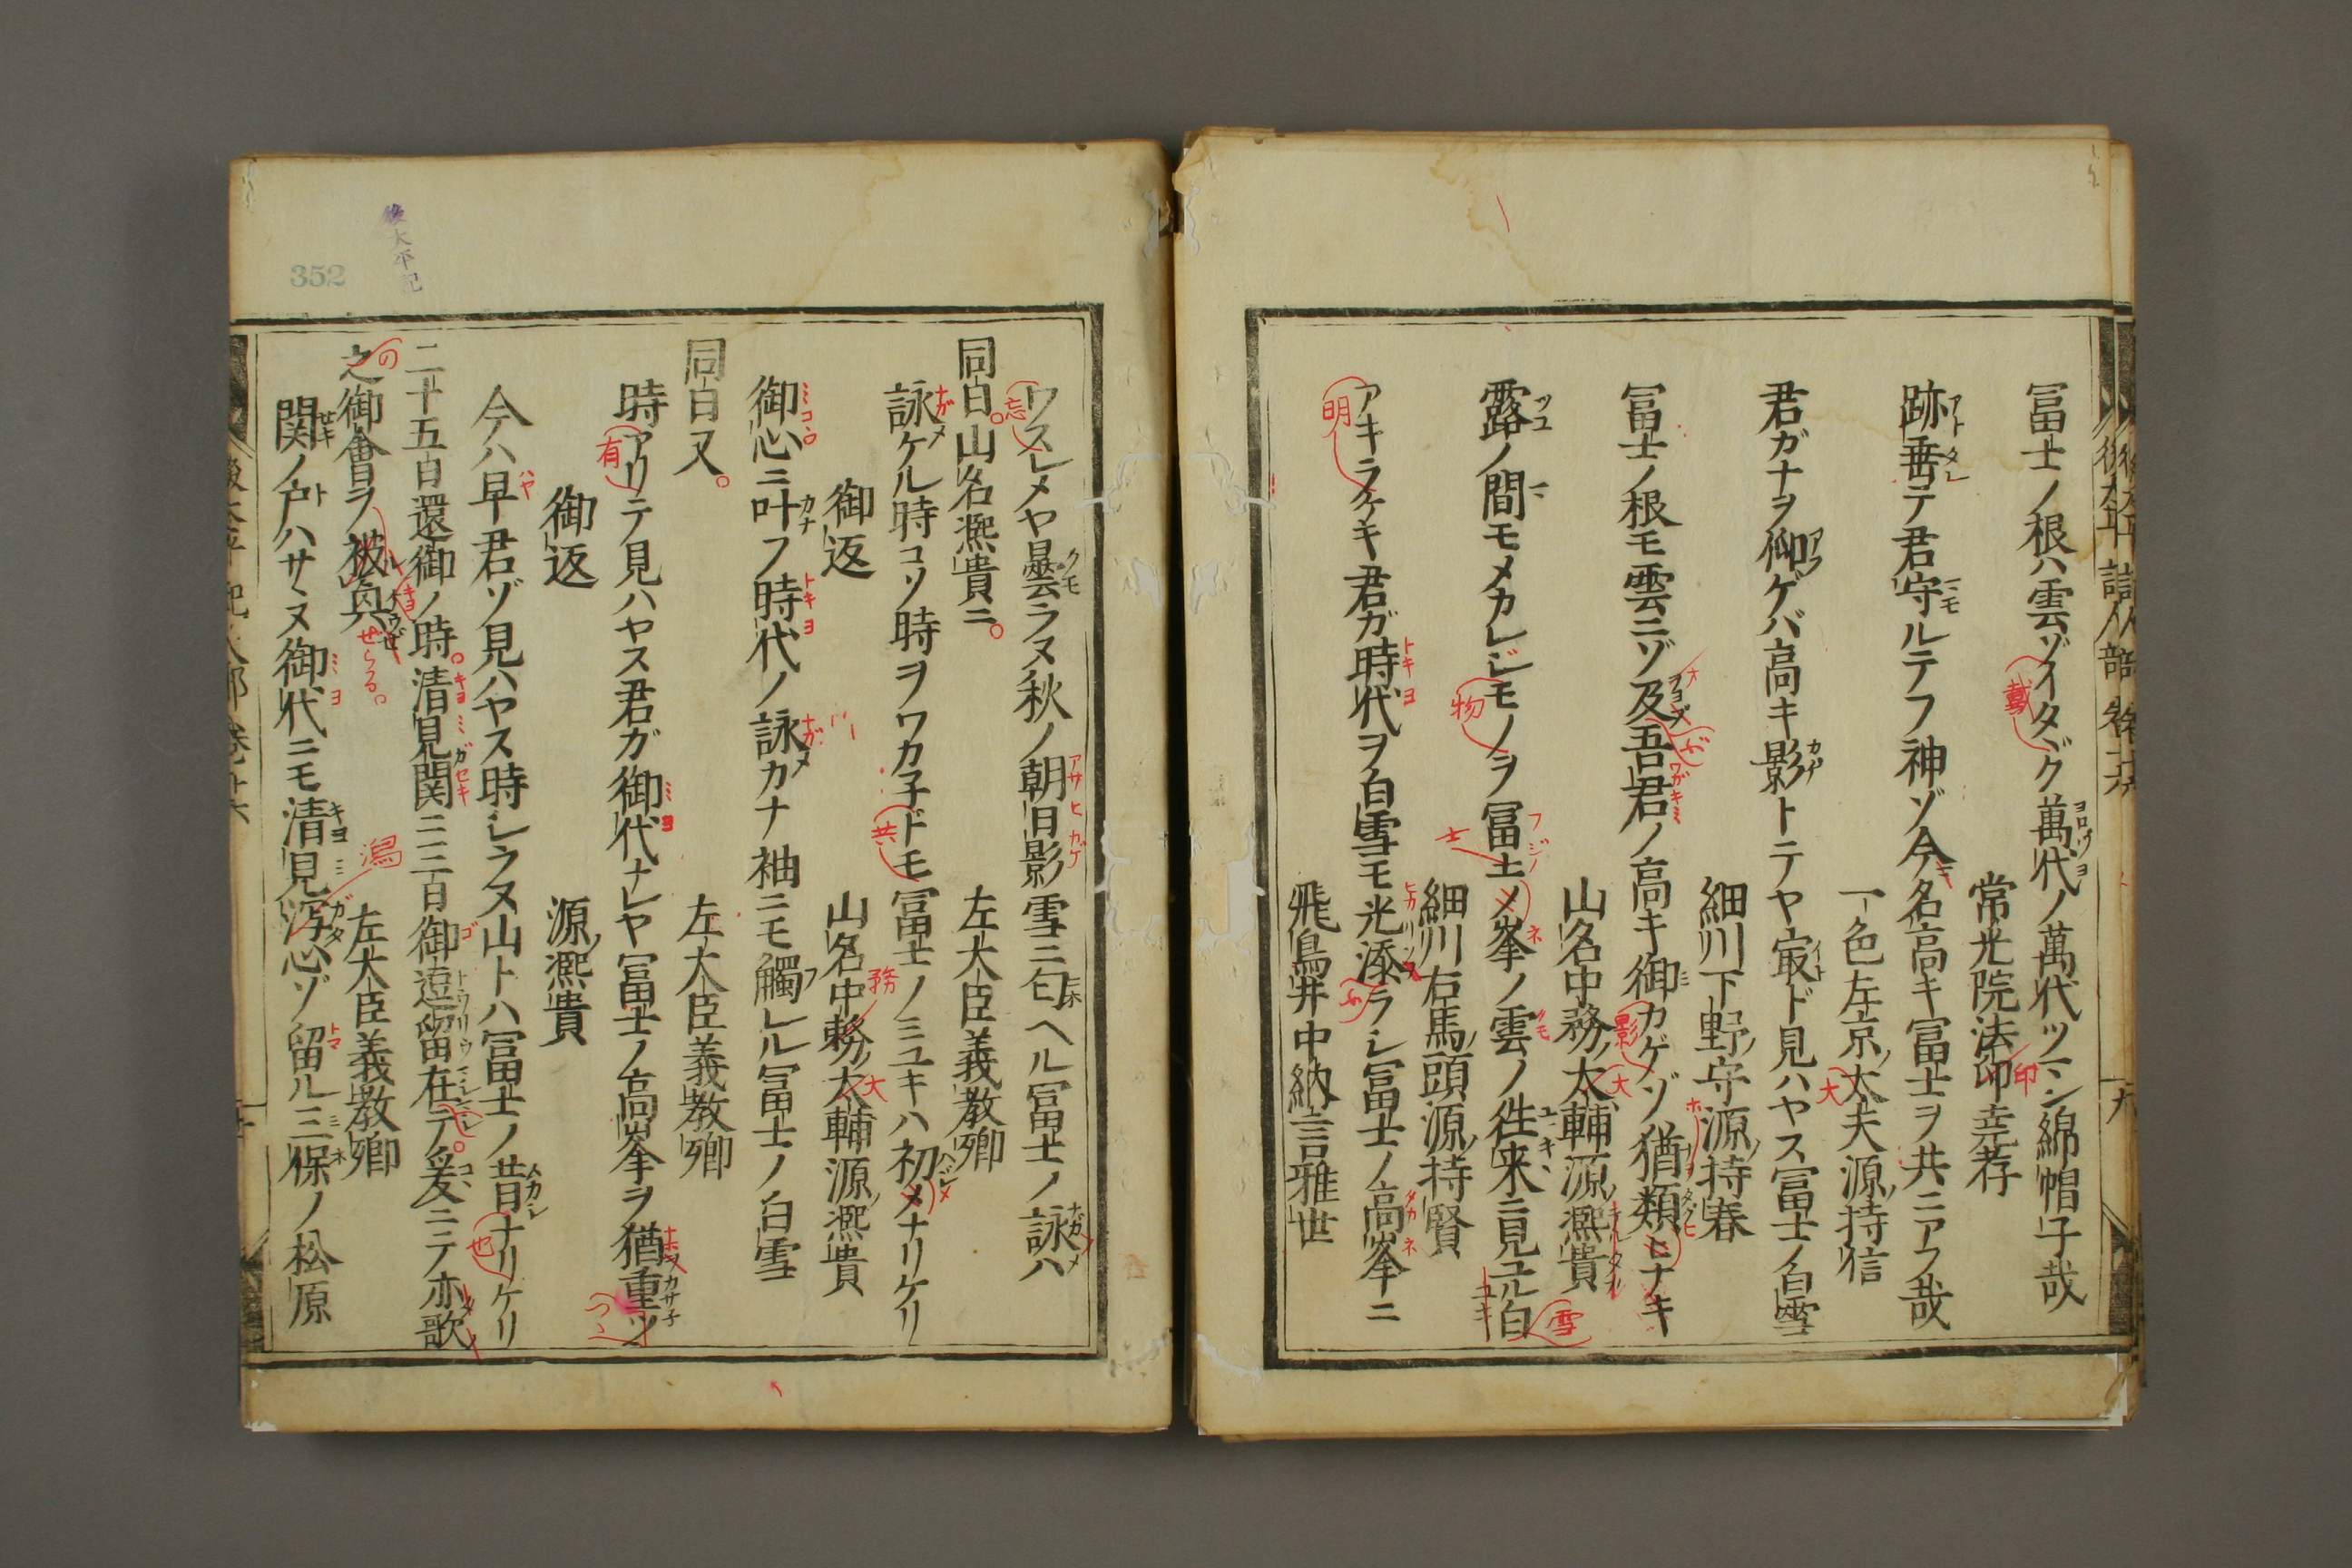 冨士ノ根ハ雲ゾイタヾク萬代ノ萬代ツマン綿帽子哉
常光院法印尭孝
跡垂テ君守ルテフ神ゾ今名高キ冨士ヲ共ニアフ哉
一色左京ノ太夫源ノ持信
君ガナヲ仰ゲバ高キ影トテヤ㝡ド見ハヤス冨士ノ白雪
細川下野ノ守源ノ持春
冨士ノ根モ雲ニゾ及吾君ノ高キ御カゲゾ猶類ヒナキ
山名中務ノ太輔源ノ凞貴
露ノ間モメカレジモノヲ冨士ノ峯ノ雲ノ徃来ニ見ユル白
細川右馬頭源ノ持賢
アキラケキ君ガ時代ヲ白雪モ光添ラシ冨士ノ高峯ニ
飛鳥井中納言雅世
ワスレメヤ曇ラヌ秋ノ朝日影雪ニ匂ヘル冨士ノ詠ハ
左大臣義教卿
同日。山名凞貴ニ。
詠ケル時コソ時ヲワカ子ドモ冨士ノミユキハ初メナリケリ
御返
山名中務ノ太輔源ノ凞貴
御心ニ叶フ時代ノ詠カナ袖ニモ觸レル冨士ノ白雪
同日又。
左大臣義教卿
時アリテ見ハヤス君ガ御代ナレヤ冨士ノ高峯ヲ猶重ツ
御返
源ノ凞貴
今ハ早君ゾ見ハヤス時シラヌ山トハ冨士ノ昔ナリケリ
二十五日還御ノ時。清見関ニ三日御逗留在テ。爰ニテ亦歌
之御會ヲ被興
左大臣義教卿
関ノ戸ハサヽヌ御代ニモ清見泻心ゾ留ル三保ノ松原
後太平記
352